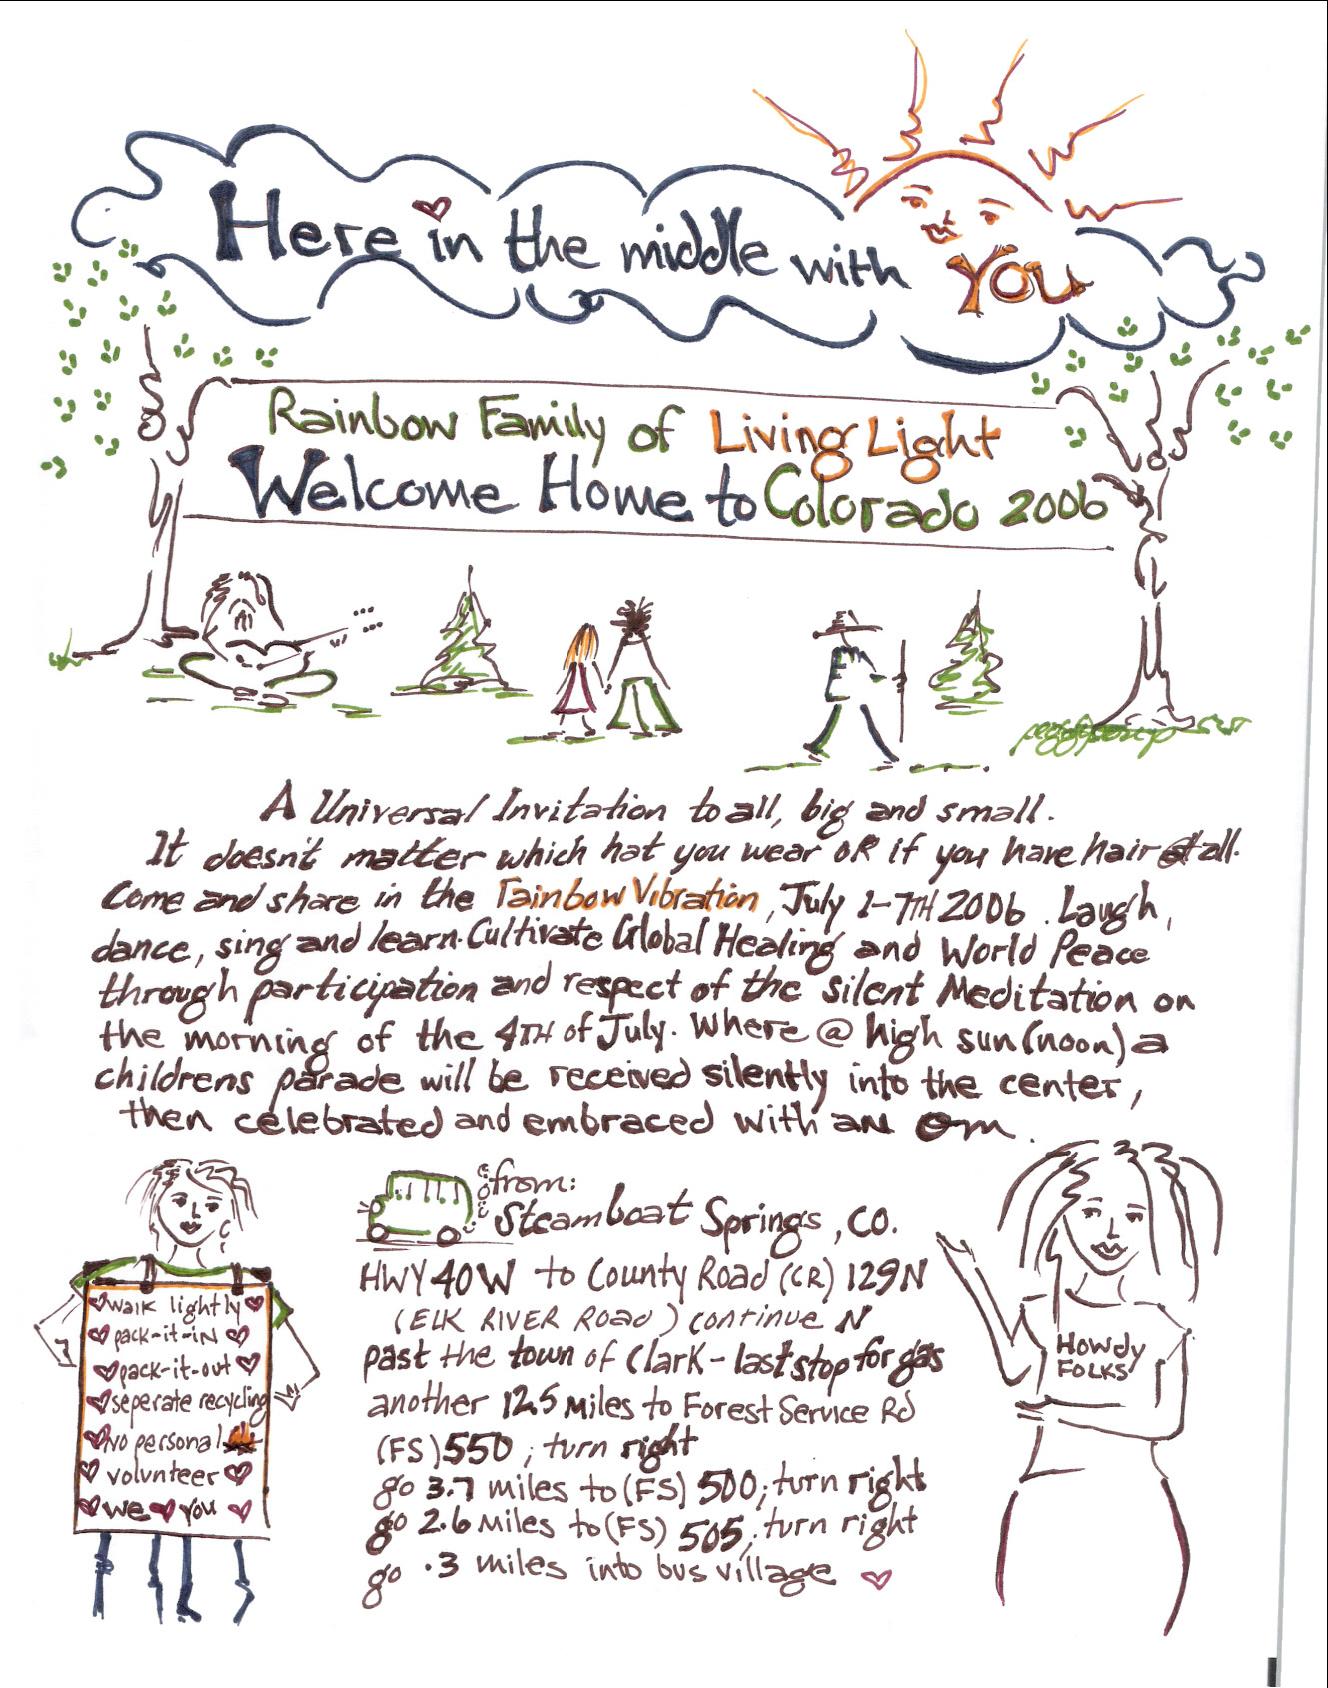 Here in the middle with You
Rainbow Family of Living Light
Welcome Home to Colorado 2006
A Universal Invitation to all, big and small.
It doesn't matter which hat you wear OR if you have hair at all.
Come and share in the rainbow Vibration, July 1-7TH 2006. Laugh,
dance, sing and learn. Cultivate Global Healing and World Peace
through participation and respect of the silent Meditation on
the morning of the 4TH of July. Where @ high sun (noon) a
childrens parade will be received silently into the center,
then celebrated and embraced with an Om.
from:
Steamboat Springs, CO.
HWY 40W to County Road (CR) 129N
(ELK RIVER ROAD) continue N
past the town of Clark - last stop for gas
another 12.5 Miles to Forest Service Rd
(FS) 550, turn right
go 3.7 miles to (FS) 500; turn right
go 2.6 Miles to (FS) 505; turn right
go .3 miles into bus village
walk lightly
pack-it-iN
pack-it-out
seperate recycling
No personal
volunteer
we you
Howdy
FOLKS